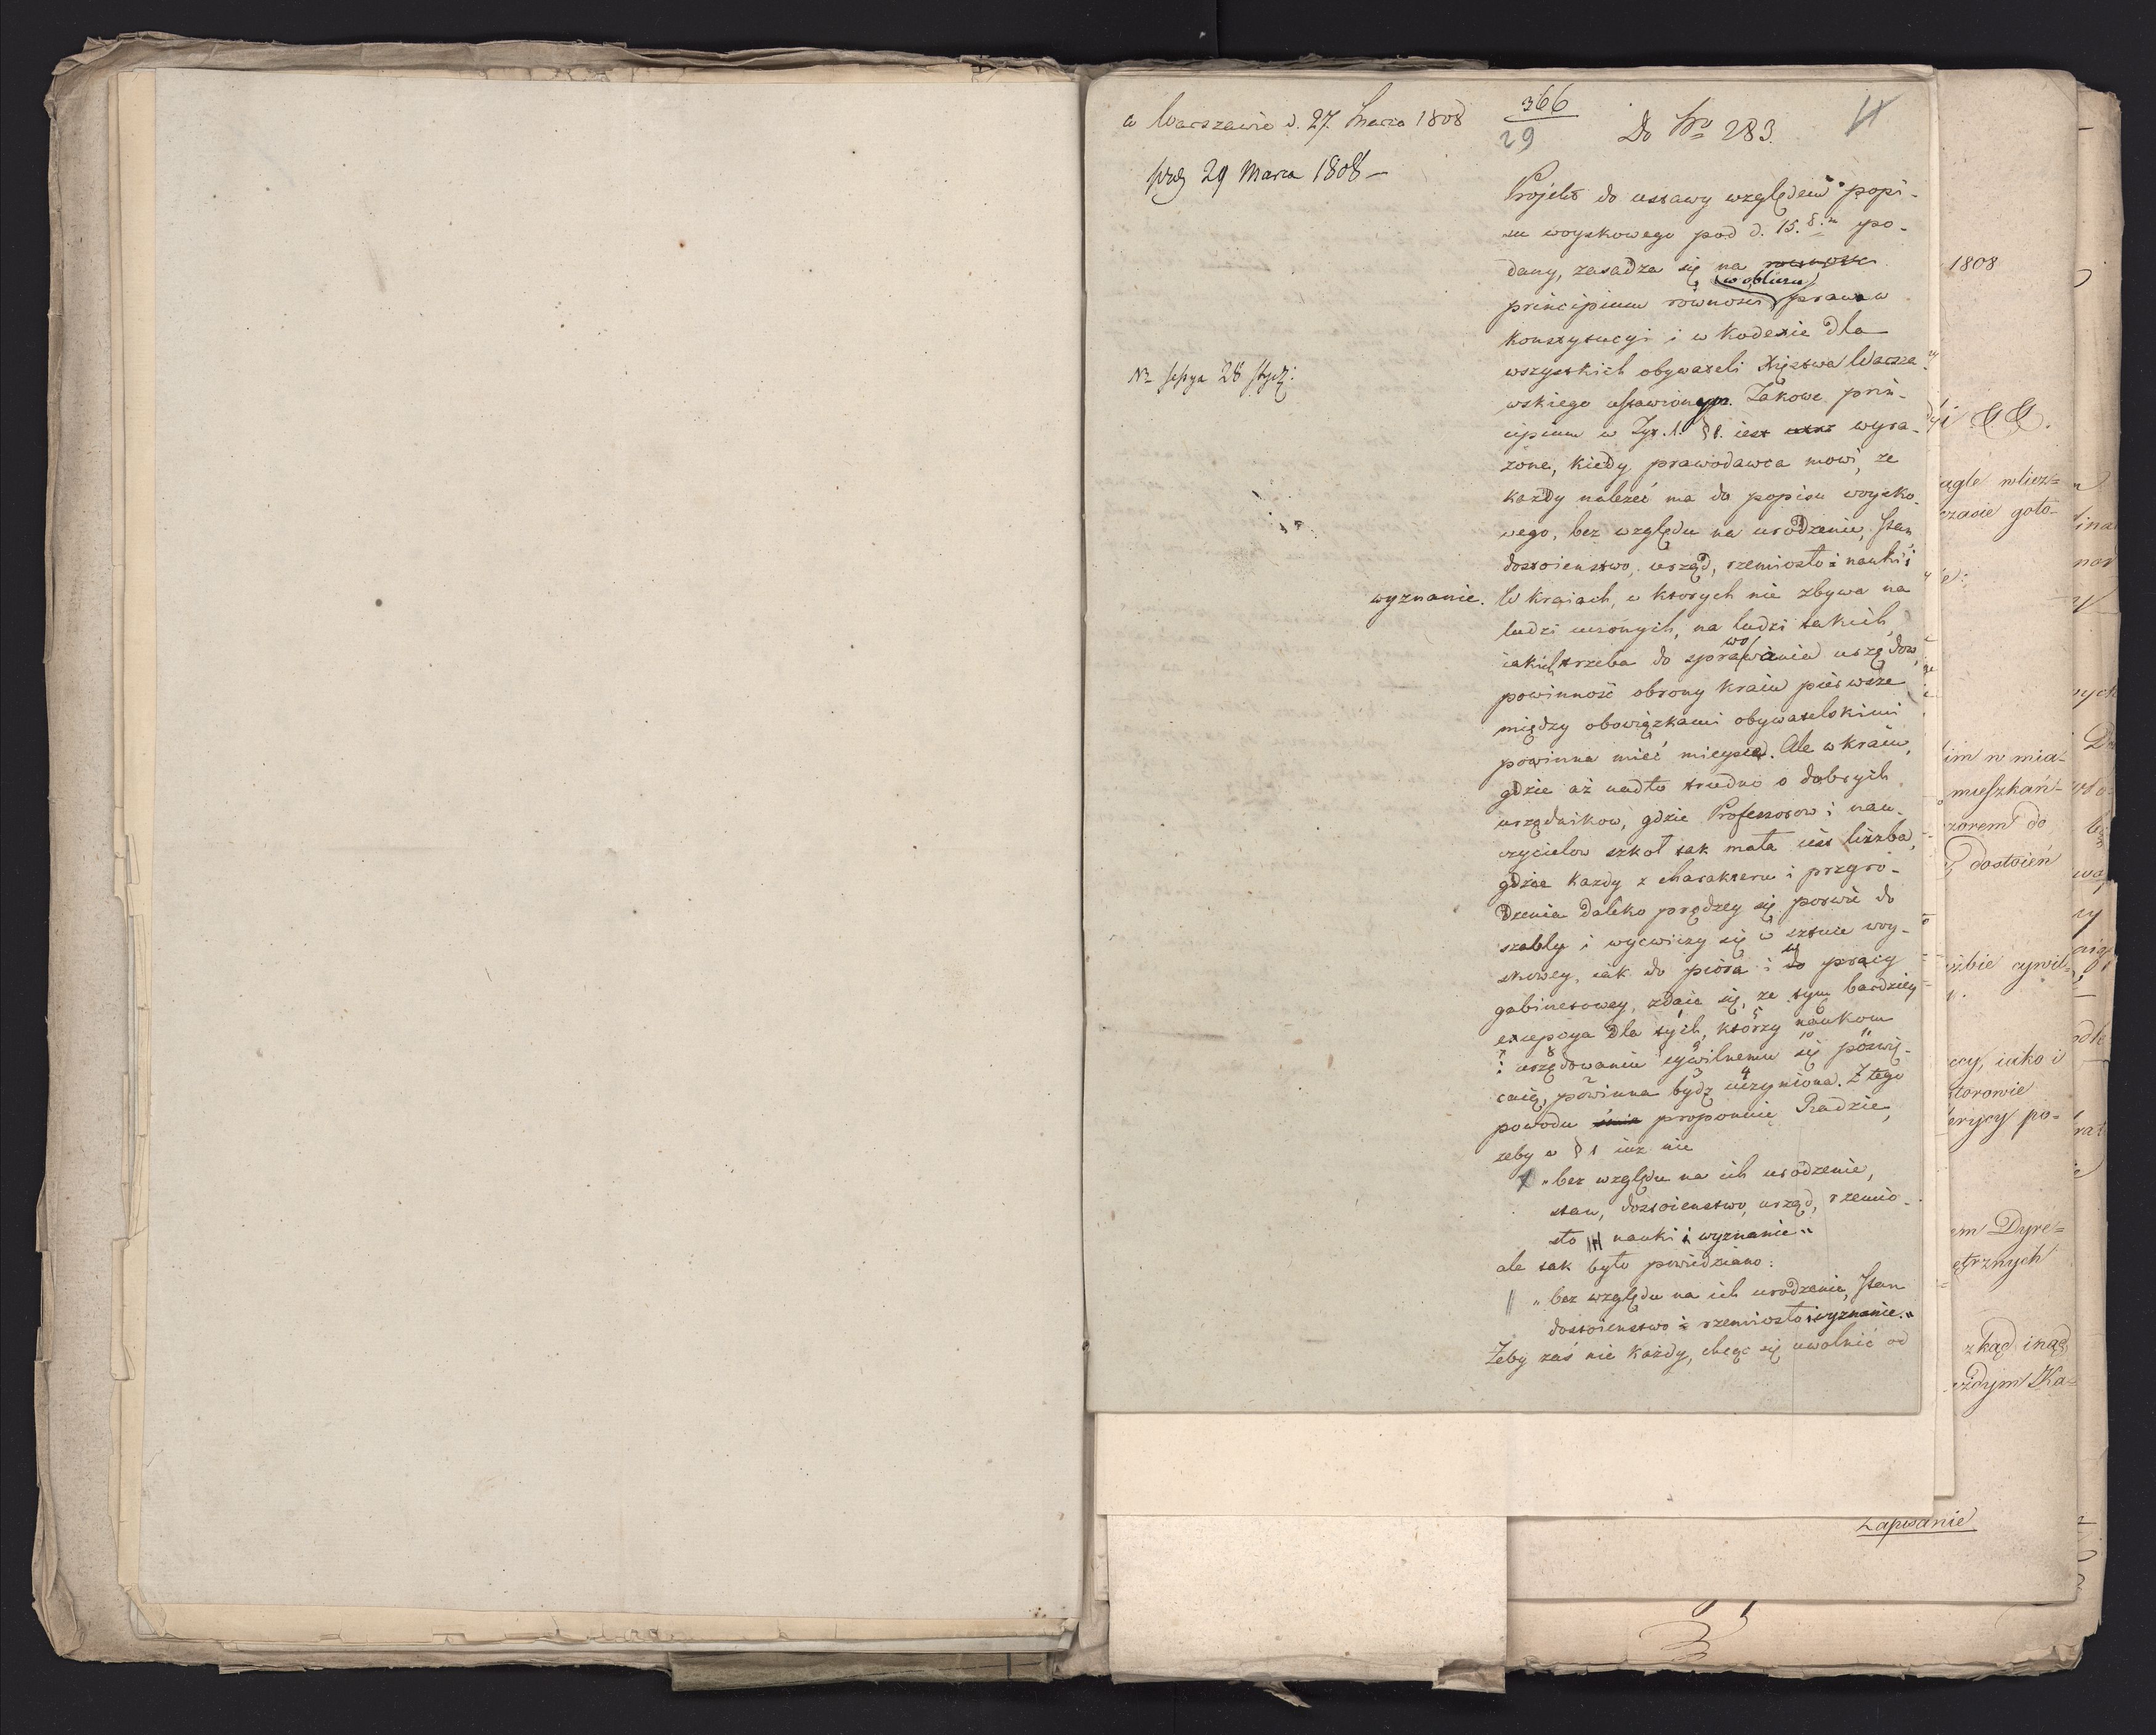 w Warszawie d. 27. Marca 1808
366
29
Do Nro 283.
prod 29 Marca 1808 –
Projekt do ustawy względem popi-
su woyskowego pod d. 15. po-
dany, zasadza się na
w obliczu
principium równości prawa w
konstytucyi i w Kodexie dla
wszystkich obywateli Xięstwa Warsza-
Na sessya 28 stycz:
wskiego ustawionym. Takowe prin-
cipium w Tyt. 1. § 1. iest wyra-
żone, kiedy prawodawca mowi, że
każdy należeć ma do popisu woysko-
wego, bez względu na urodzenie, stan
dostoienstwo, urząd, rzemiosło i nauki i
wyznanie. W kraiach, w ktorych nie zbywa na
ludzi uczonych, na ludzi takich,
wo
iakich trzeba do sprawiania urzędow,
powinność obrony kraiu pierwsze
między obowiązkami obywatelskimi
powinna mieć mieysce. Ale w kraiu,
gdzie aż nadto trudno o dobrych
urzędnikow, gdzie Professorow i nau-
czycielow szkoł tak mała iest liczba,
gdzie każdy z charakteru i przyro-
dzenia daleko prędzey się porwie do
szabły i wyćwiczy się w sztuce woy-
skowey, iak do pióra i do pracy
gabinetowey, zdaie się, że tym bardziey
excepcya dla tych, którzy naukom
i urzędowaniu cywilnemu się poświę-
caią, powinna bydź uczyniona. Z tego
powodu proponuię Radzie,
żeby w § 1 iuż nie
„bez względu na ich urodzenie,
stan, dostoienstwo, urząd, rzemio-
sło nauki i wyznanie“
ale tak było powiedziano:
„bez względu na ich urodzenie, stan
dostoienstwo i rzemiosło i wyznanie.“
Żeby zaś nie każdy, chcąc się uwolnić od
1808
ągle wlicz=
czasie goto-
im w mia-
mieszkań-
zorem do
dostoień
użbie cywil=
cy, iako i
ktorowie
erycy po=
em Dyre=
ętrznych
zkąd inąd
ażdym Ka=
Zapisanie